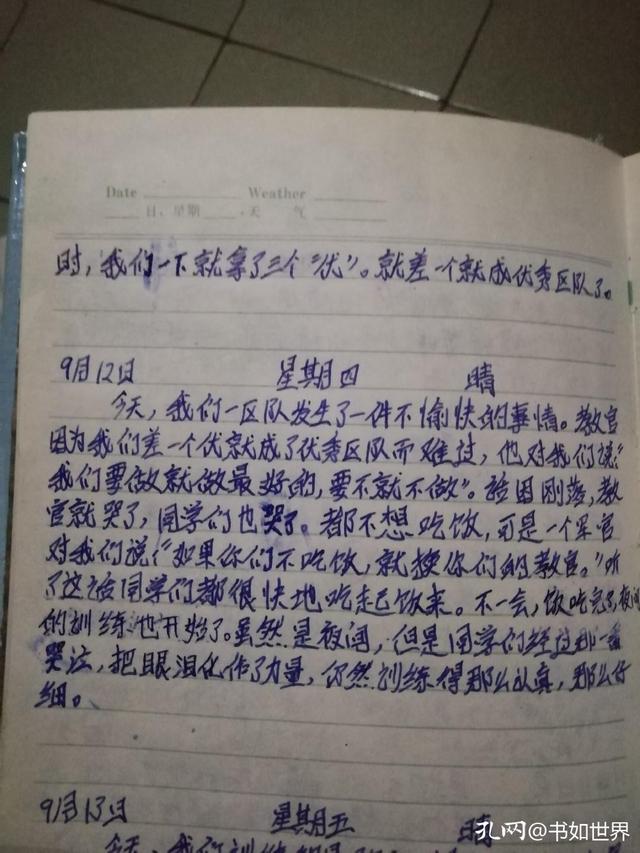 Date Weather
日、星期 、天 气
时，我们一下就拿了三个“优”。就差一个就成优秀区队了。
9月12日 星期四 晴
今天，我们一区队发生了一件不愉快的事情。教官
因为我们差一个优就成了优秀区队而难过，他对我们说：“
我们要做就做最好的，要不就不做”。 刚落，教
官就哭了，同学们也哭了。都不想吃饭，可是一个军官
对我们说：“如果你们不吃饭，就换你们的教官。”听
了这话同学们都很快地吃起饭来。不一会，饭吃完了，夜间
的训练也开始了。虽然是夜间，但是同学们经过那一番
哭泣，把眼泪化作了力量，仍然训练得那么认真，那么仔
细。
9月13日 星期五 晴
今天，我们训练
孔网@书如世界